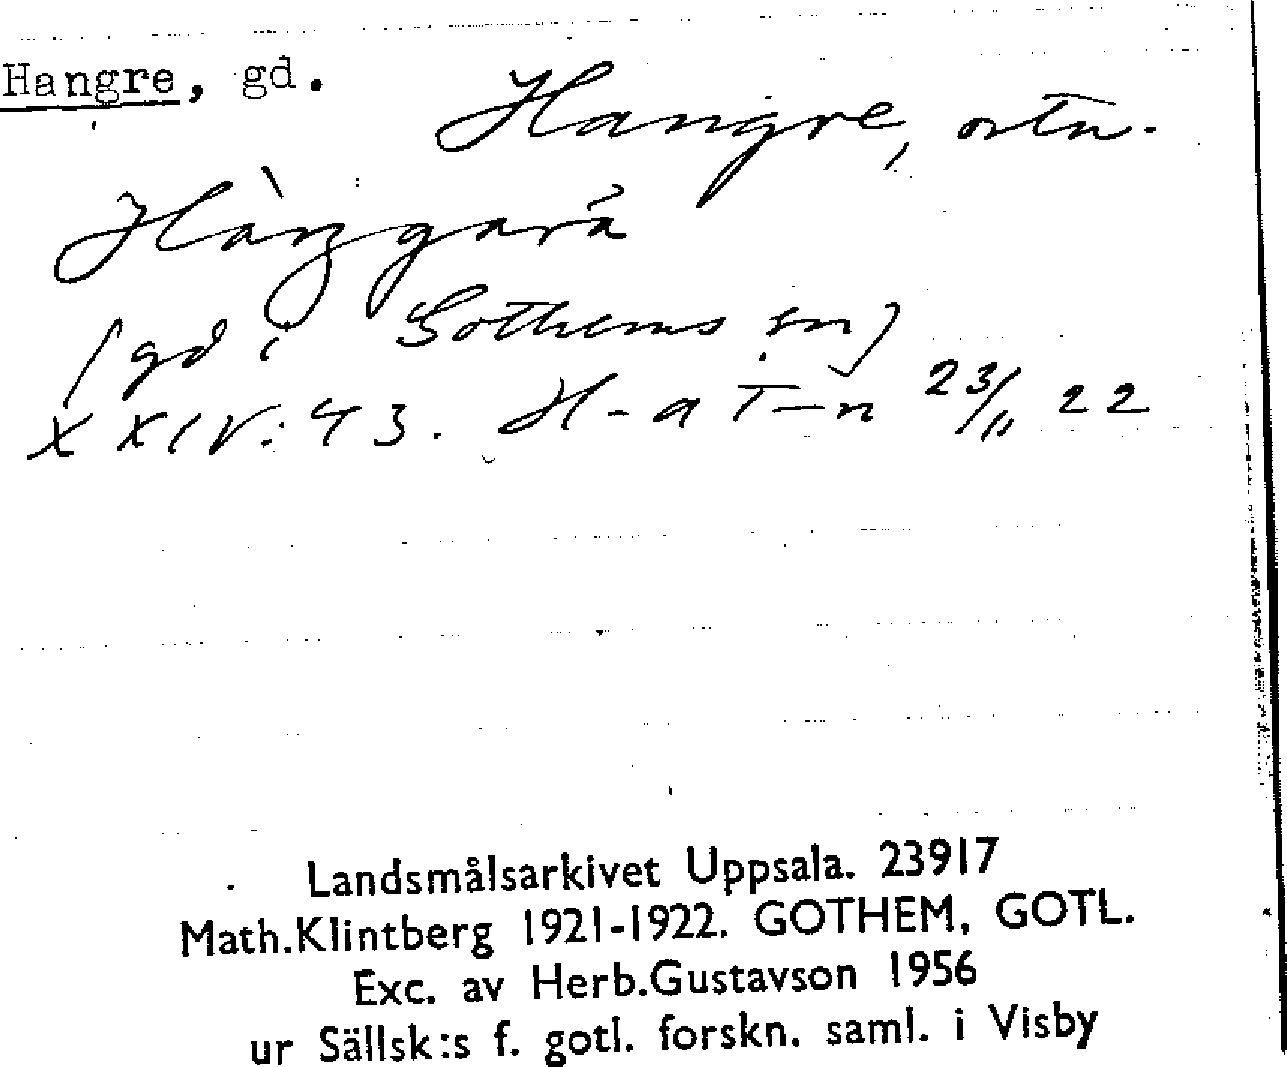 Hangre, gd.
Hangre, ortn.
Hàŋgarà
(gd i Gothems sn)
XXIV:43. H-a T-n 23/11 22
Landsmålsarkivet Uppsala. 23917
Math.Klintberg 1921-1922. GOTHEM, GOTL.
Exc. av Herb.Gustavson 1956
ur Sällsk:s f. gotl. forskn. saml. i Visby